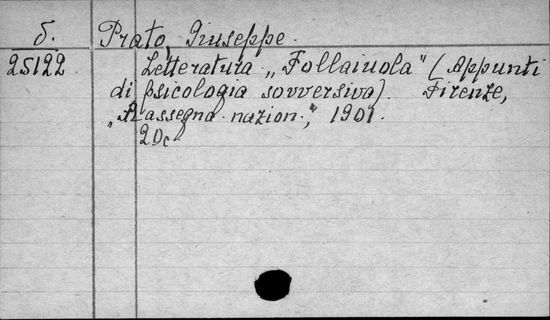 б. Prato, Giuseppe.
25122. Letteratura „Follaiuola" (Appunti
di psicologia sovversiva). Firenze,
„Rassegna nazion.", 1901.
20c.